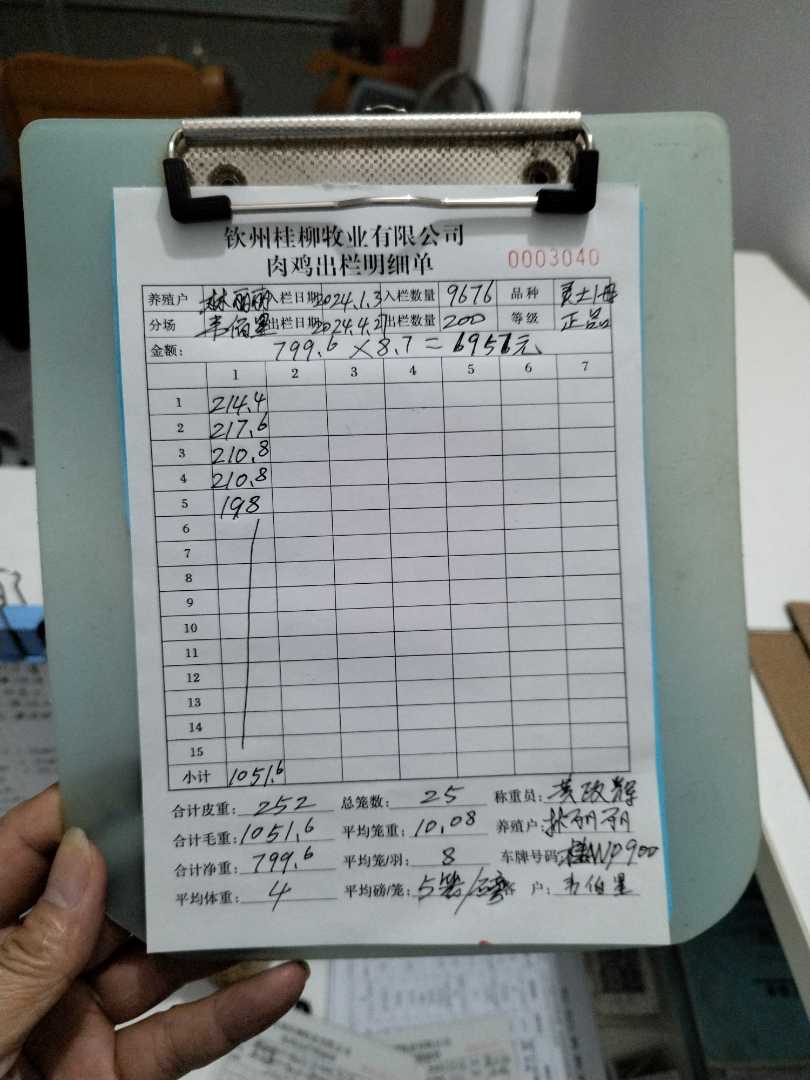 钦州桂柳牧业有限公司
肉鸡出栏明细单
0003040
养殖户 林丽丽 入栏日期 2024.1.3 入栏数量 9676 品种
分场 韦伯星 出栏日期 2024.4.27 出栏数量 200 等级 正品
金额: 799.6×8.7=6956元
1 2 3 4 5 6 7
1 214.4
2 217.6
3 210.8
4 210.8
5 198
6
7
8
9
10
11
12
13
14
15
小计 1051.6
合计皮重: 252 总笼数: 25 称重员: 黄政辉
合计毛重: 1051.6 平均笼重: 10.08 养殖户: 林丽丽
合计净重: 799.6 平均笼/羽: 8 车牌号码: 桂NWP900
平均体重: 4 平均磅/笼: 5笼/磅 客户: 韦伯星